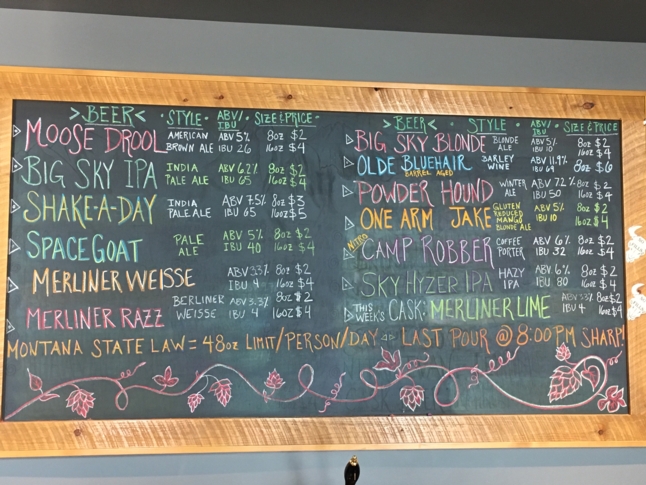 >BEER< · STYLE · ABV/IBU · SIZE & PRICE ·
MOOSE DROOL AMERICAN BROWN ALE ABV 5% IBU 26 8oz $2 16oz $4
BIG SKY IPA INDIA PALE ALE ABV 6.2% IBU 65 8oz $2 16oz $4
SHAKE-A-DAY INDIA PALE ALE ABV 7.5% IBU 65 8oz $3 16oz $5
SPACE GOAT PALE ALE ABV 5% IBU 40 8oz $2 16oz $4
MERLINER WEISSE ABV 3.3% IBU 4 8oz $2 16oz $4
MERLINER RAZZ BERLINER WEISSE ABV 3.3% IBU 4 8oz $2 16oz $4
>BEER< · STYLE · ABV/IBU SIZE & PRICE
BIG SKY BLONDE BLONDE ALE ABV 5% IBU 10 8oz $2 16oz $4
OLDE BLUEHAIR BARREL AGED BARLEY WINE ABV 11.9% IBU 69 8oz $6
POWDER HOUND WINTER ALE ABV 7.2% IBU 50 8oz $2 16oz $4
ONE ARM JAKE GLUTEN REDUCED MANGO BLONDE ALE ABV 5% IBU 10 8oz $2 16oz $4
NITRO CAMP ROBBER COFFEE PORTER ABV 6% IBU 32 8oz $2 16oz $4
SKY HYZER IPA HAZY IPA ABV 6% IBU 80 8oz $2 16oz $4
THIS WEEK'S CASK: MERLINER LIME ABV 3.3% IBU 4 8oz $2 16oz $4
MONTANA STATE LAW = 48oz LIMIT/PERSON/DAY LAST POUR @ 8:00 PM SHARP!